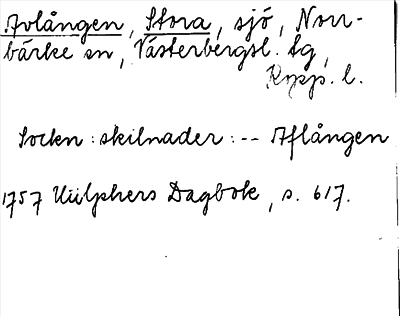 Avlången, Stora, sjö, Norr-
bärke sn, Västerbergsl. tg,
Kopp. l.
Sockn: skilnader: -- Aflången
1757 Hülphers Dagbok, s. 617.